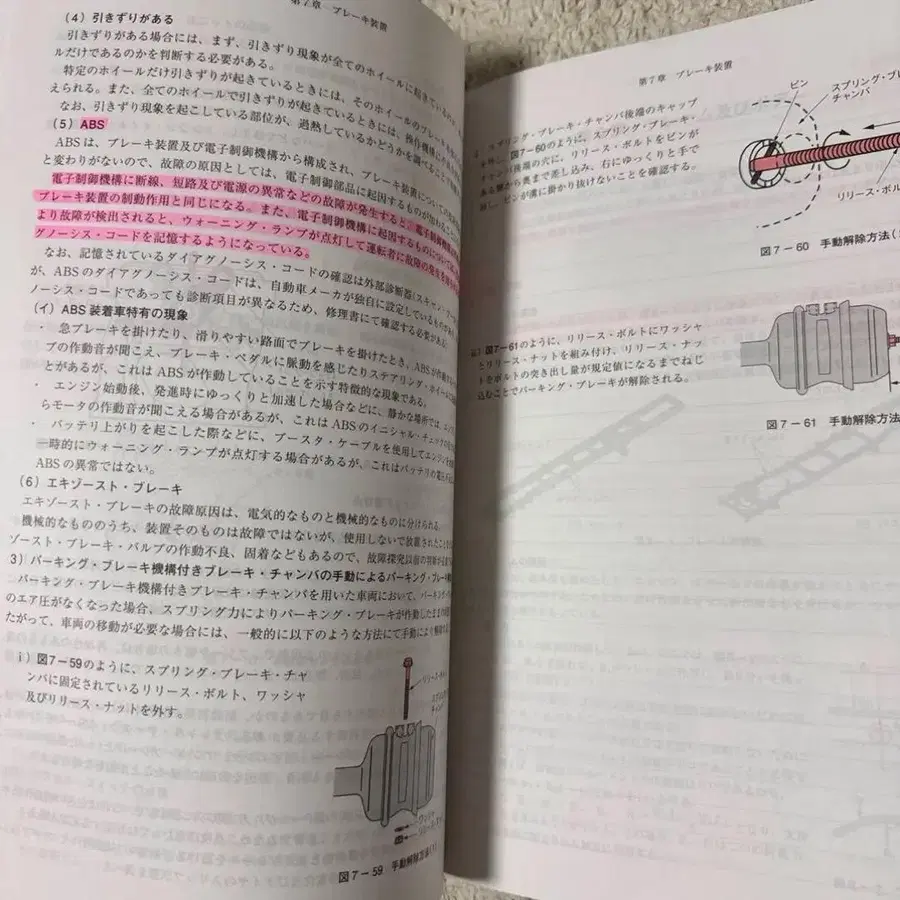 第7章 ブレーキ装置
(4) 引きずりがある
引きずりがある場合には、まず、引きずり現象が全てのホイールに起きているのか、
ルだけであるのかを判断する必要がある。
特定のホイールだけ引きずりが起きているときには、そのホイールのブレーキ
えられる。また、全てのホイールで引きずりが起きているときには、操作機構に
なお、引きずり現象を起こしている部位が、過熱しているかどうかを調べること
(5) ABS
ABSは、ブレーキ装置及び電子制御機構から構成され、ブレーキ装置については
と変わりがないので、故障の原因としては、電子制御部品に起因するものが加わる
電子制御機構に断線、短路及び電源の異常などの故障が発生すると、電子制御
ブレーキ装置の制動作用と同じになる。また、電子制御機構に起因するものについて
より故障が検出されると、ウォーニング・ランプが点灯して運転者に故障の発生を
グノーシス・コードを記憶するようになっている。
なお、記憶されているダイアグノーシス・コードの確認は外部診断器(スキャン・ツール
が、ABSのダイアグノーシス・コードは、自動車メーカが独自に設定しているものが
ノーシス・コードであっても診断項目が異なるため、修理書にて確認する必要がある。
(イ) ABS装着車特有の現象
・ 急ブレーキを掛けたり、滑りやすい路面でブレーキを掛けたとき、ABSが作動
プの作動音が聞こえ、ブレーキ・ペダルに脈動を感じたりステアリング・ホイールに
とがあるが、これはABSが作動していることを示す特徴的な現象である。
・ エンジン始動後、発進時にゆっくりと加速した場合などに、静かな場所では、エンジン
らモータの作動音が聞こえる場合があるが、これはABSのイニシャル・チェックの
・ バッテリ上がりを起こした際などに、ブースタ・ケーブルを使用してエンジンを
一時的にウォーニング・ランプが点灯する場合があるが、これはバッテリの電圧
ABSの異常ではない。
(6) エキゾースト・ブレーキ
エキゾースト・ブレーキの故障原因は、電気的なものと機械的なものに分けられる
機械的なもののうち、装置そのものは故障ではないが、使用しないで放置されたこと
ゾースト・ブレーキ・バルブの作動不良、固着などもあるので、故障探究以前の
3) パーキング・ブレーキ機構付きブレーキ・チャンバの手動によるパーキング・ブレーキ
パーキング・ブレーキ機構付きブレーキ・チャンバを用いた車両において、パーキング
のエア圧がなくなった場合、スプリング力によりパーキング・ブレーキが作動したまま
たがって、車両の移動が必要な場合には、一般的に以下のような方法にて手動により
i) 図7-59のように、スプリング・ブレーキ・チャ
ンバに固定されているリリース・ボルト、ワッシャ
及びリリース・ナットを外す。
リリース・ボルト
スプリング
チャンバ
ワッシャ
リリース・ナット
図7-59 手動解除方法(1)
第7章 ブレーキ装置
スプリング・ブレーキ・チャンバ後端のキャップ
図7-60のように、スプリング・ブレーキ・
チャンバ後端の穴に、リリース・ボルトをピンが
ある側から奥まで差し込み、右にゆっくりと手で
回し、ピンが溝に掛かり抜けないことを確認する。
ピン
スプリング・ブ
チャンバ
リリース・ボル
図7-60 手動解除方法(
図7-61のように、リリース・ボルトにワッシャ
とリリース・ナットを組み付け、リリース・ナッ
トをボルトの突き出し量が規定値になるまでねじ
込むことでパーキング・ブレーキが解除される。
図7-61 手動解除方法